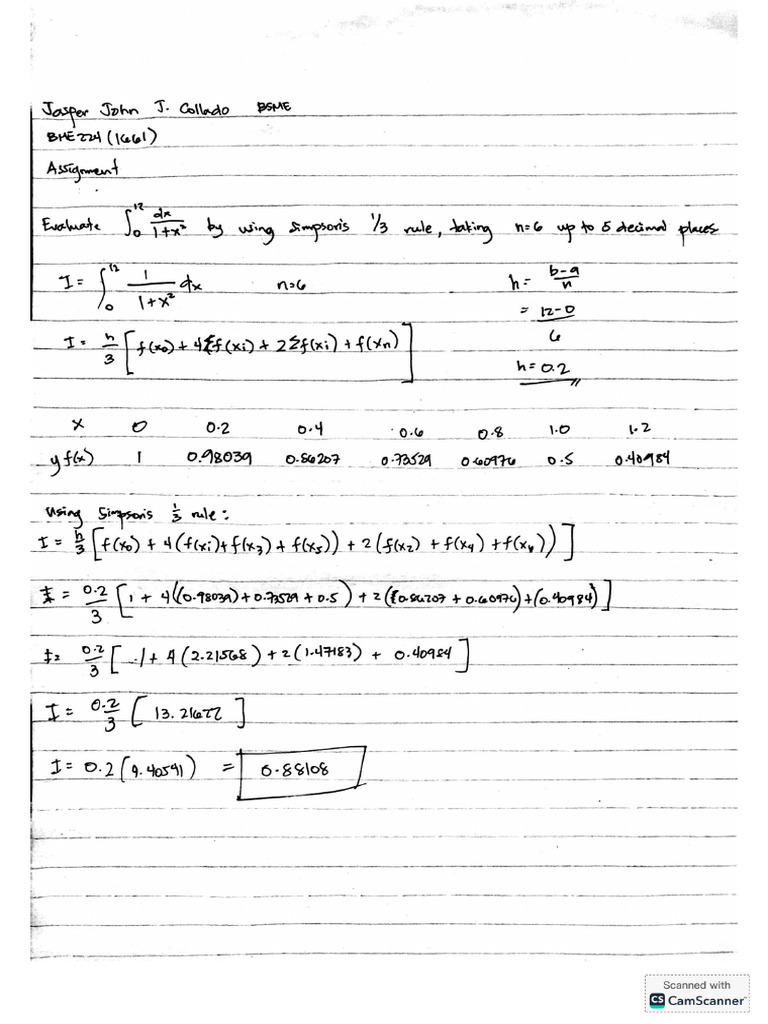 Jasper John J. Collado BSME
BME 224 (1661)
Assignment
Evaluate ∫₀¹² dx/(1+x²) by using Simpson's 1/3 rule, taking n=6 up to 5 decimal places
I = ∫₀¹² 1/(1+x²) dx n=6 h = (b-a)/n
= (12-0)/6
I = h/3 [f(x₀) + 4Σf(xi) + 2Σf(xi) + f(xn)]
h = 0.2
x 0 0.2 0.4 0.6 0.8 1.0 1.2
y f(x) 1 0.98039 0.86207 0.73529 0.60976 0.5 0.40984
Using Simpson's 1/3 rule:
I = h/3 [f(x₀) + 4(f(xi) + f(x₃) + f(x₅)) + 2(f(x₂) + f(x₄) + f(x₆))]
I = 0.2/3 [1 + 4((0.98039) + 0.73529 + 0.5) + 2((0.86207 + 0.60976) + (0.40984)]
I = 0.2/3 [1 + 4(2.21568) + 2(1.47183) + 0.40984]
I = 0.2/3 [13.21622]
I = 0.2(4.40541) = 0.88108
Scanned with
CS CamScanner